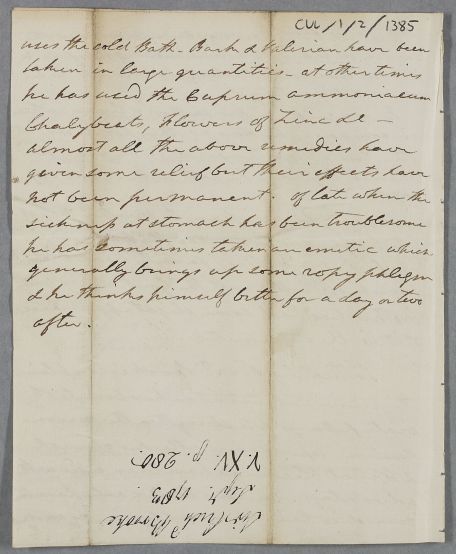 CUL/1/2/1385
uses the cold Bath. Bark & Valerian have been
taken in large quantities - at other times
he has used the Cuprum ammoniacum
Chalybeats, Flowers of Zinc &c -
almost all the above remedies have
given some relief but their effects have
not been permanent. Of late when the
sickness at stomach has been troublesome
he has sometimes taken an emetic which
generally brings up some ropy phlegm
& he thinks himself better for a day or two
after.
Sir Richd Brooke
Septr. 1783.
V. XV. p. 280.